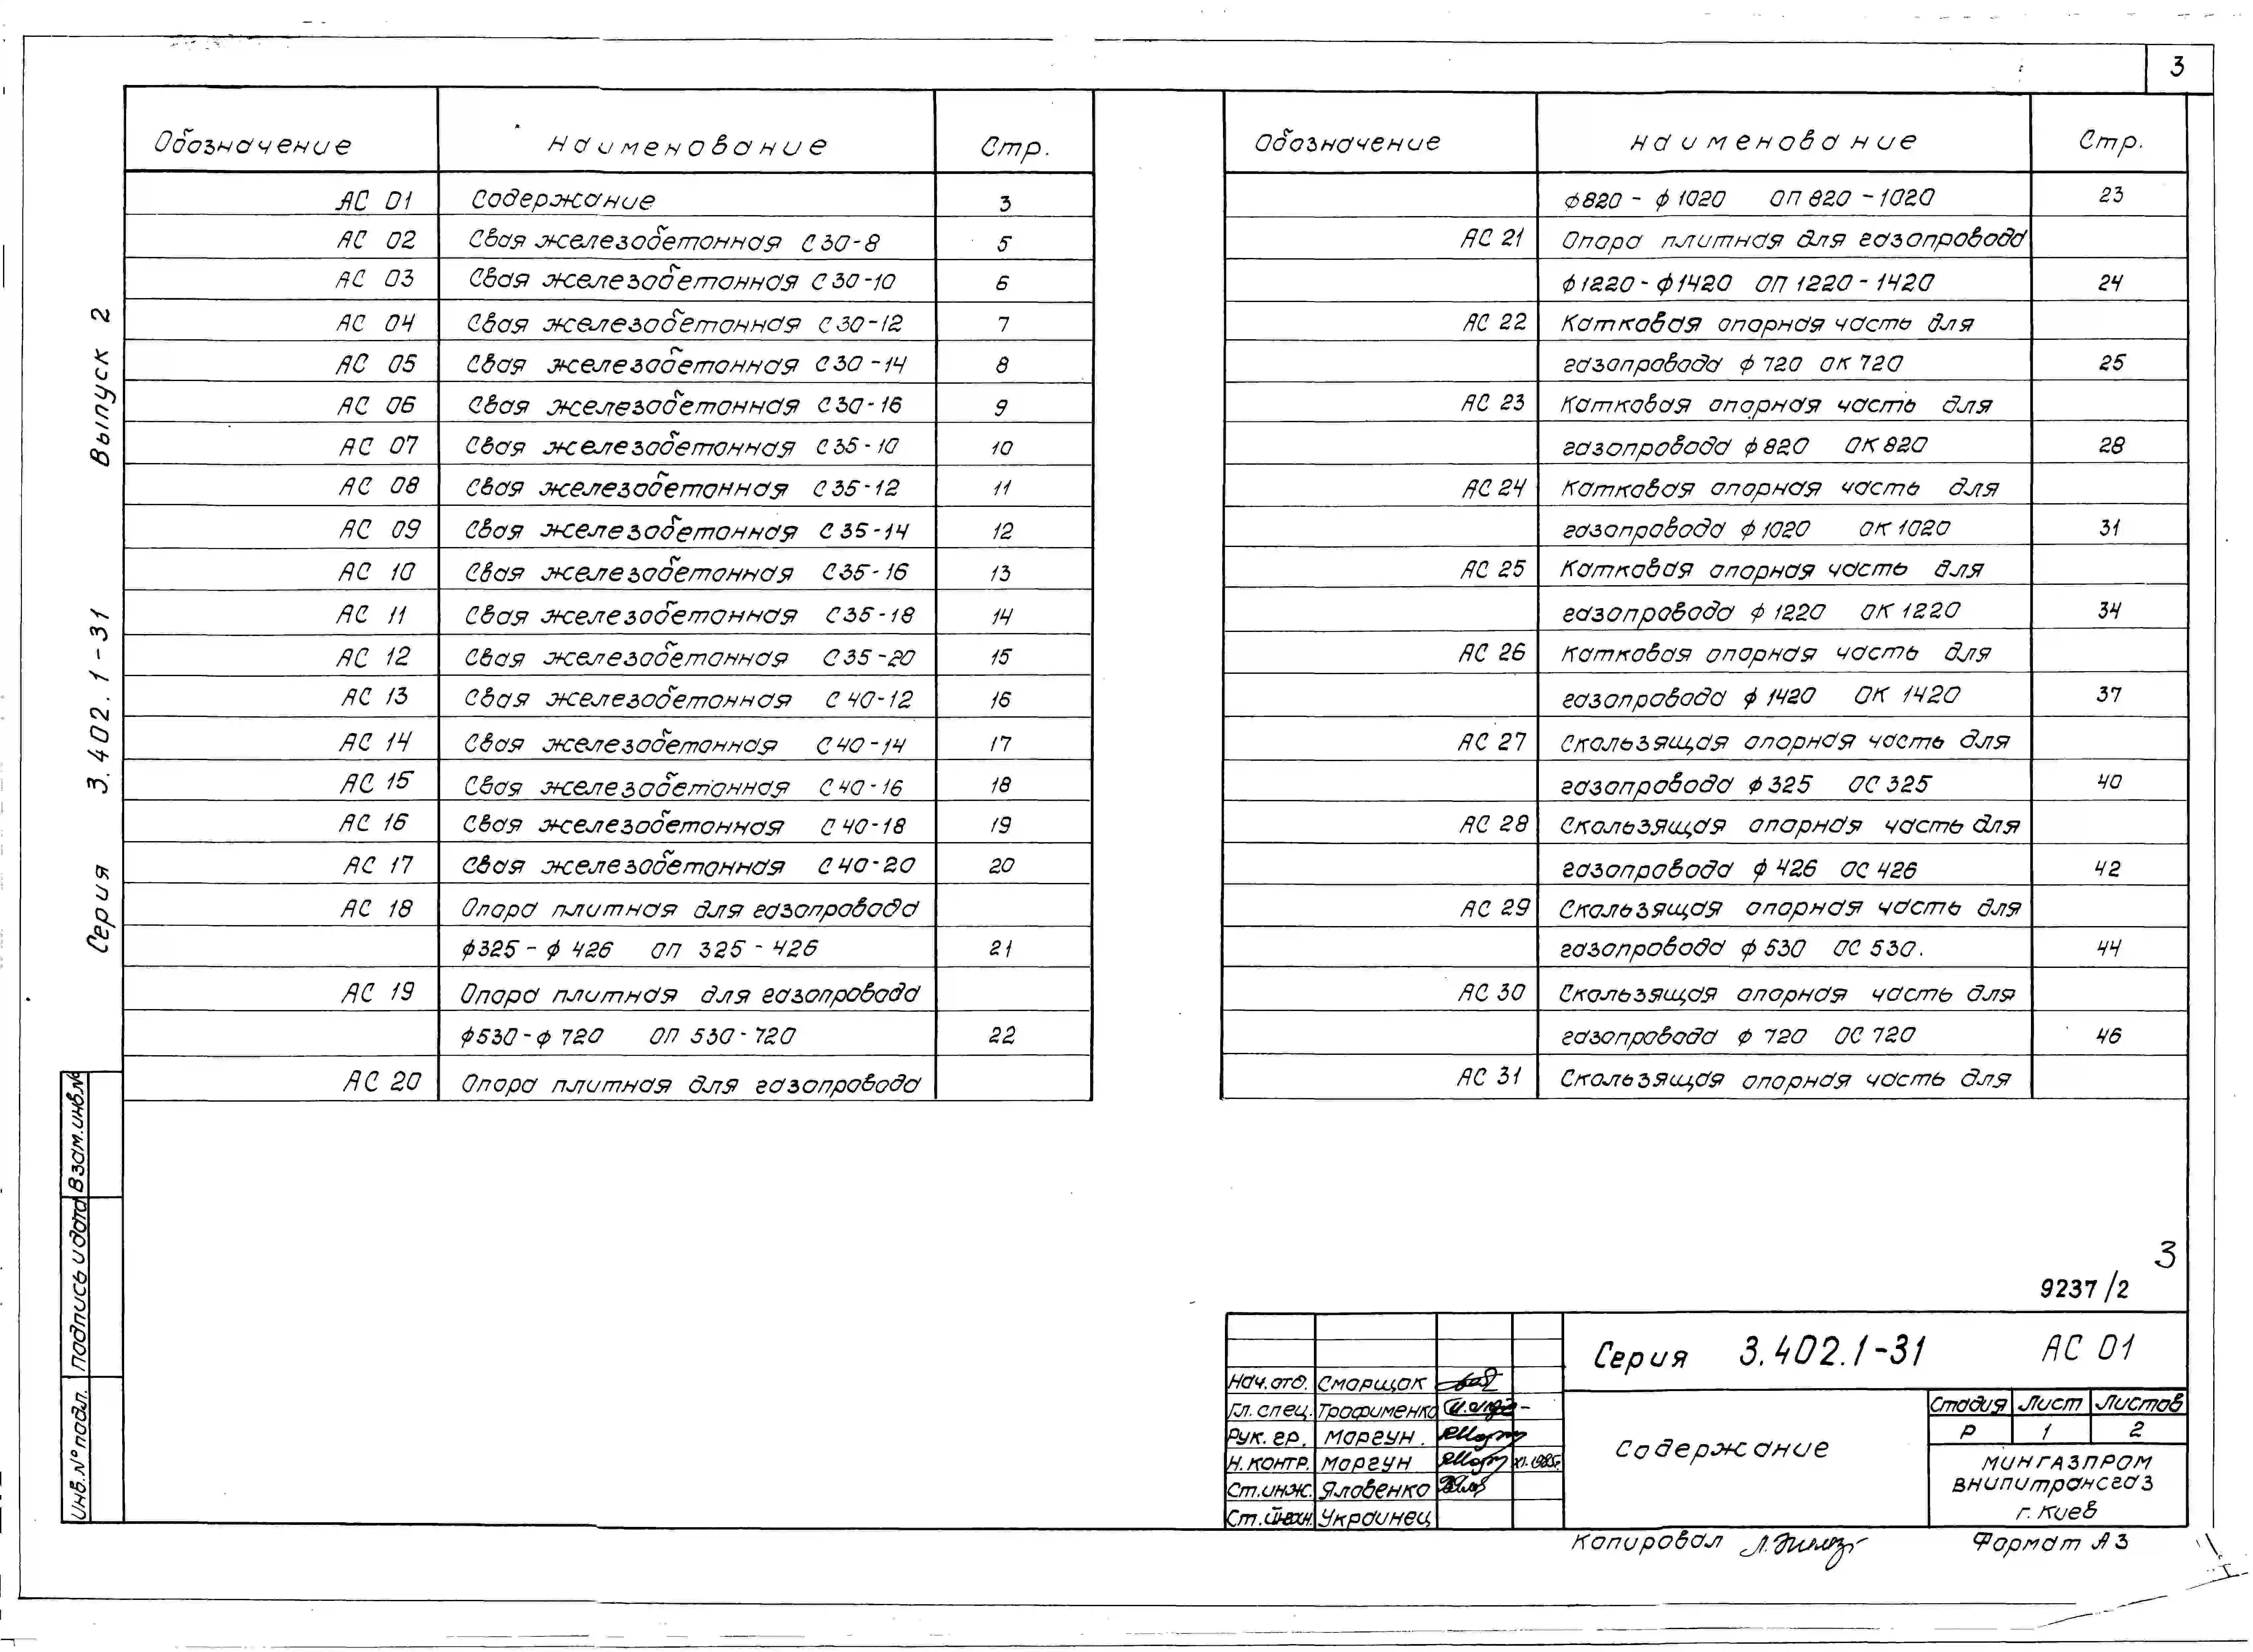 3
Обозначение Наименование Стр.
АС 01 Содержание 3
АС 02 Свая железобетонная С30-8 5
АС 03 Свая железобетонная С30-10 6
АС 04 Свая железобетонная С30-12 7
АС 05 Свая железобетонная С30-14 8
АС 06 Свая железобетонная С30-16 9
АС 07 Свая железобетонная С35-10 10
АС 08 Свая железобетонная С35-12 11
АС 09 Свая железобетонная С35-14 12
АС 10 Свая железобетонная С35-16 13
АС 11 Свая железобетонная С35-18 14
АС 12 Свая железобетонная С35-20 15
АС 13 Свая железобетонная С40-12 16
АС 14 Свая железобетонная С40-14 17
АС 15 Свая железобетонная С40-16 18
АС 16 Свая железобетонная С40-18 19
АС 17 Свая железобетонная С40-20 20
АС 18 Опора плитная для газопровода
ф325 - ф 426 ОП 325 - 426 21
АС 19 Опора плитная для газопровода
ф530 - ф 720 ОП 530 - 720 22
АС 20 Опора плитная для газопровода
Обозначение Наименование Стр.
ф820 - ф 1020 ОП 820 - 1020 23
АС 21 Опора плитная для газопровода
ф1220 - ф1420 ОП 1220 - 1420 24
АС 22 Катковая опорная часть для
газопровода ф 720 ОК 720 25
АС 23 Катковая опорная часть для
газопровода ф 820 ОК 820 28
АС 24 Катковая опорная часть для
газопровода ф 1020 ОК 1020 31
АС 25 Катковая опорная часть для
газопровода ф 1220 ОК 1220 34
АС 26 Катковая опорная часть для
газопровода ф 1420 ОК 1420 37
АС 27 Скользящая опорная часть для
газопровода ф 325 ОС 325 40
АС 28 Скользящая опорная часть для
газопровода ф 426 ОС 426 42
АС 29 Скользящая опорная часть для
газопровода ф 530 ОС 530. 44
АС 30 Скользящая опорная часть для
газопровода ф 720 ОС 720 46
АС 31 Скользящая опорная часть для
Серия 3.402.1-31 Выпуск 2
Взам.инв.№
Подпись и дата
Инв.№ подл.
3
9237/2
Серия 3.402.1-31 АС 01
Нач.отд. Сморщок
Гл. спец. Трофименко
Рук. гр. Моргун.
Н. контр. Моргун XI.1985г
Ст.инж. Яловенко
Ст. Украинец
Содержание
Стадия Лист Листов
Р 1 2
МИНГАЗПРОМ
ВНИПИтрансгаз
г. Киев
Копировал
Формат А3